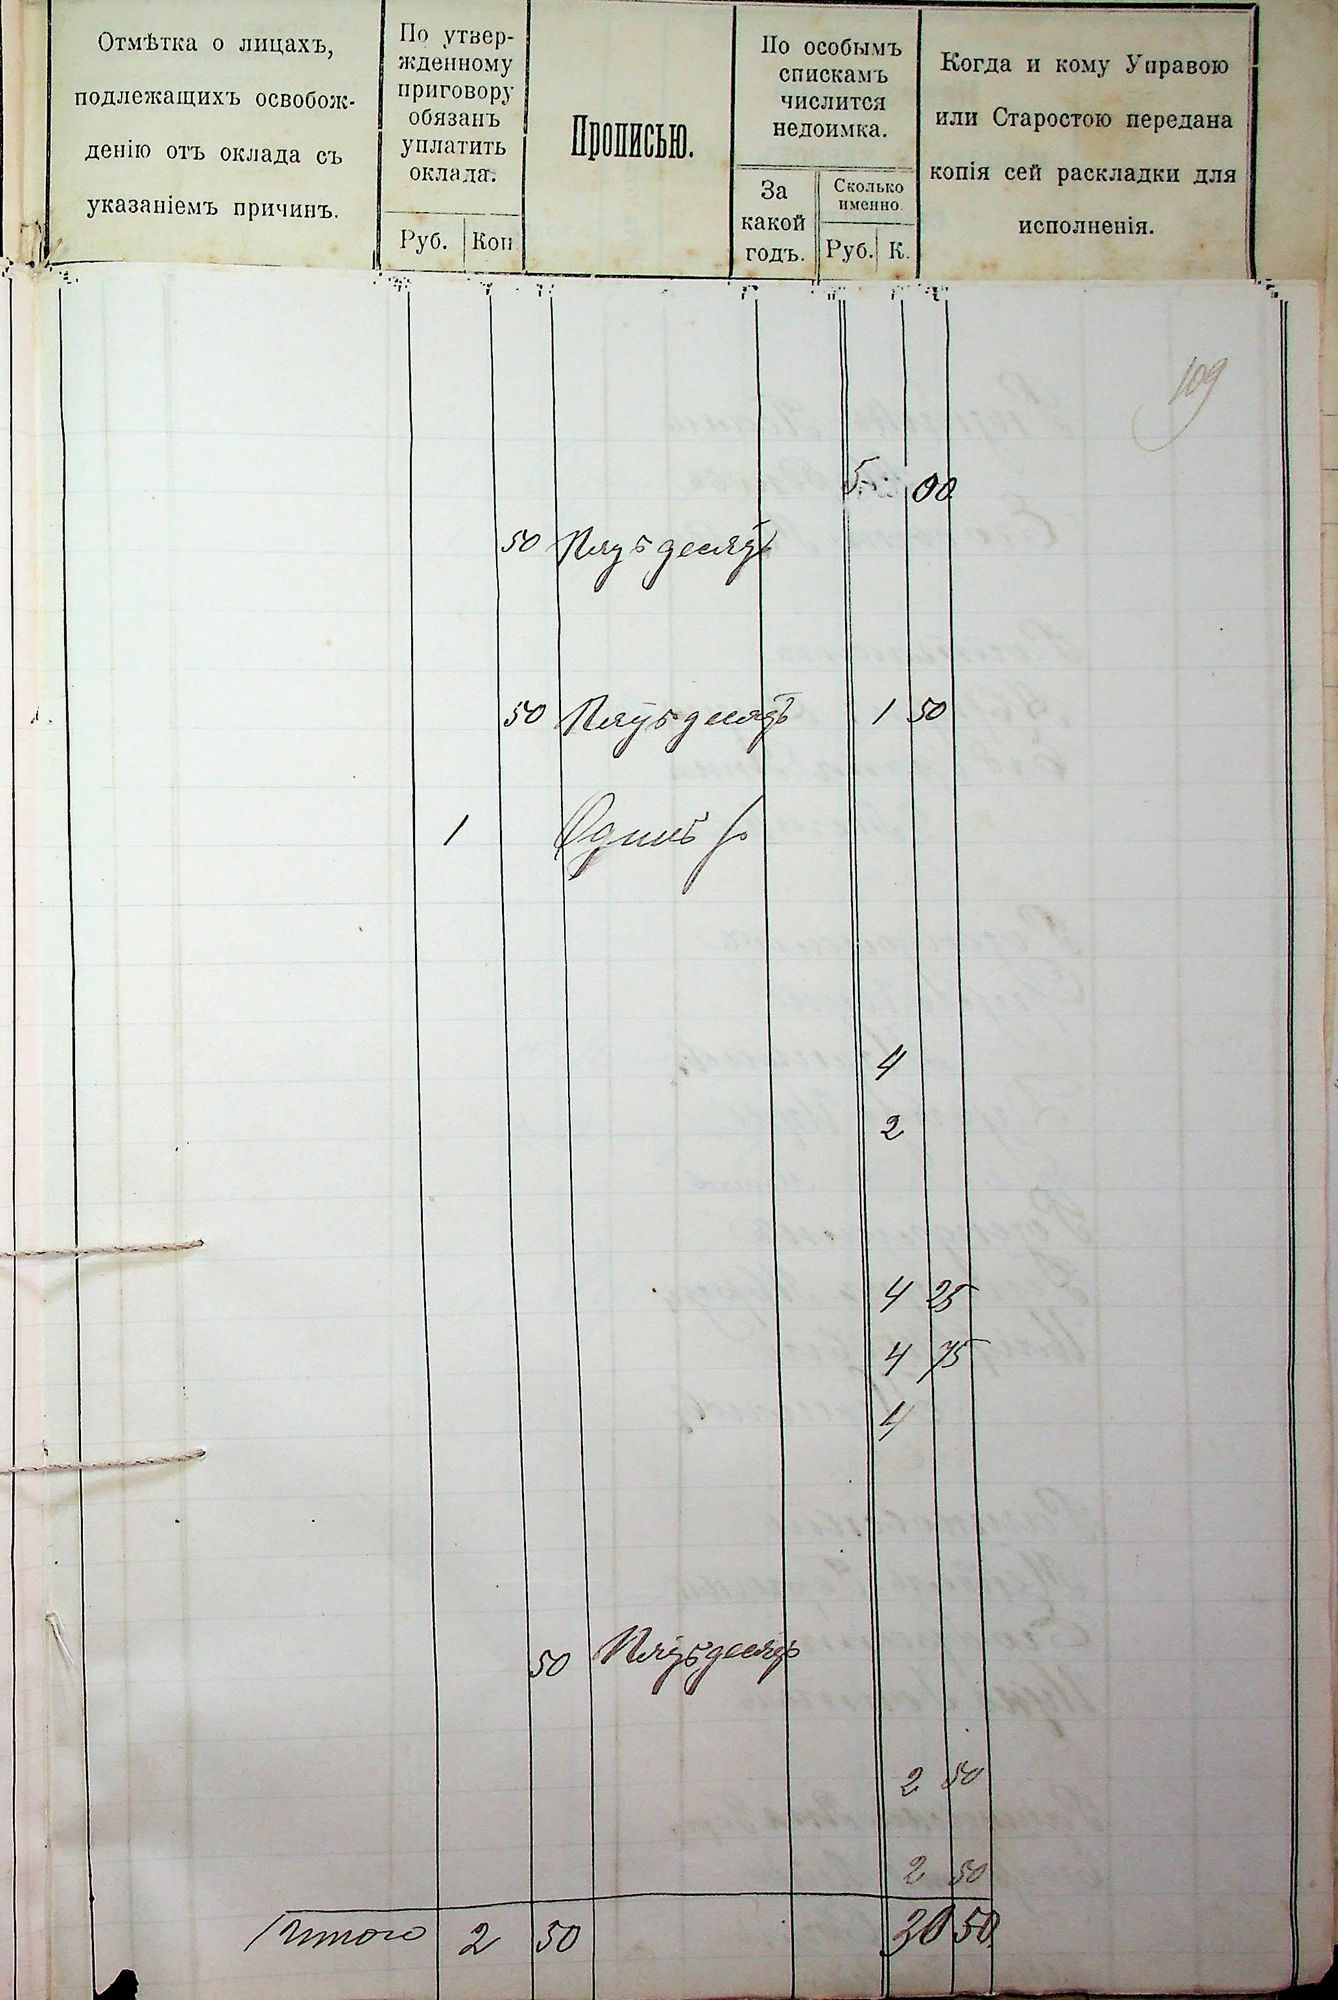 Отмѣтка о лицахъ,
подлежащихъ освобож-
денію отъ оклада съ
указаніемъ причинъ.
По утвер-
жденному
приговору
обязанъ
уплатить
оклада:
Руб. Коп
Прописью.
По особымъ
спискамъ
числится
недоимка.
За
какой
годъ.
Сколько
именно.
Руб. К.
Когда и кому Управою
или Старостою передана
копія сей раскладки для
исполненія.
109
5 00
50 Пятьдесятъ
50 Пятьдесятъ 1 50
1 Одинъ р
4
2
4 25
4 75
4
50 Пятьдесятъ
2 50
2 50
Итого 2 50 30 50